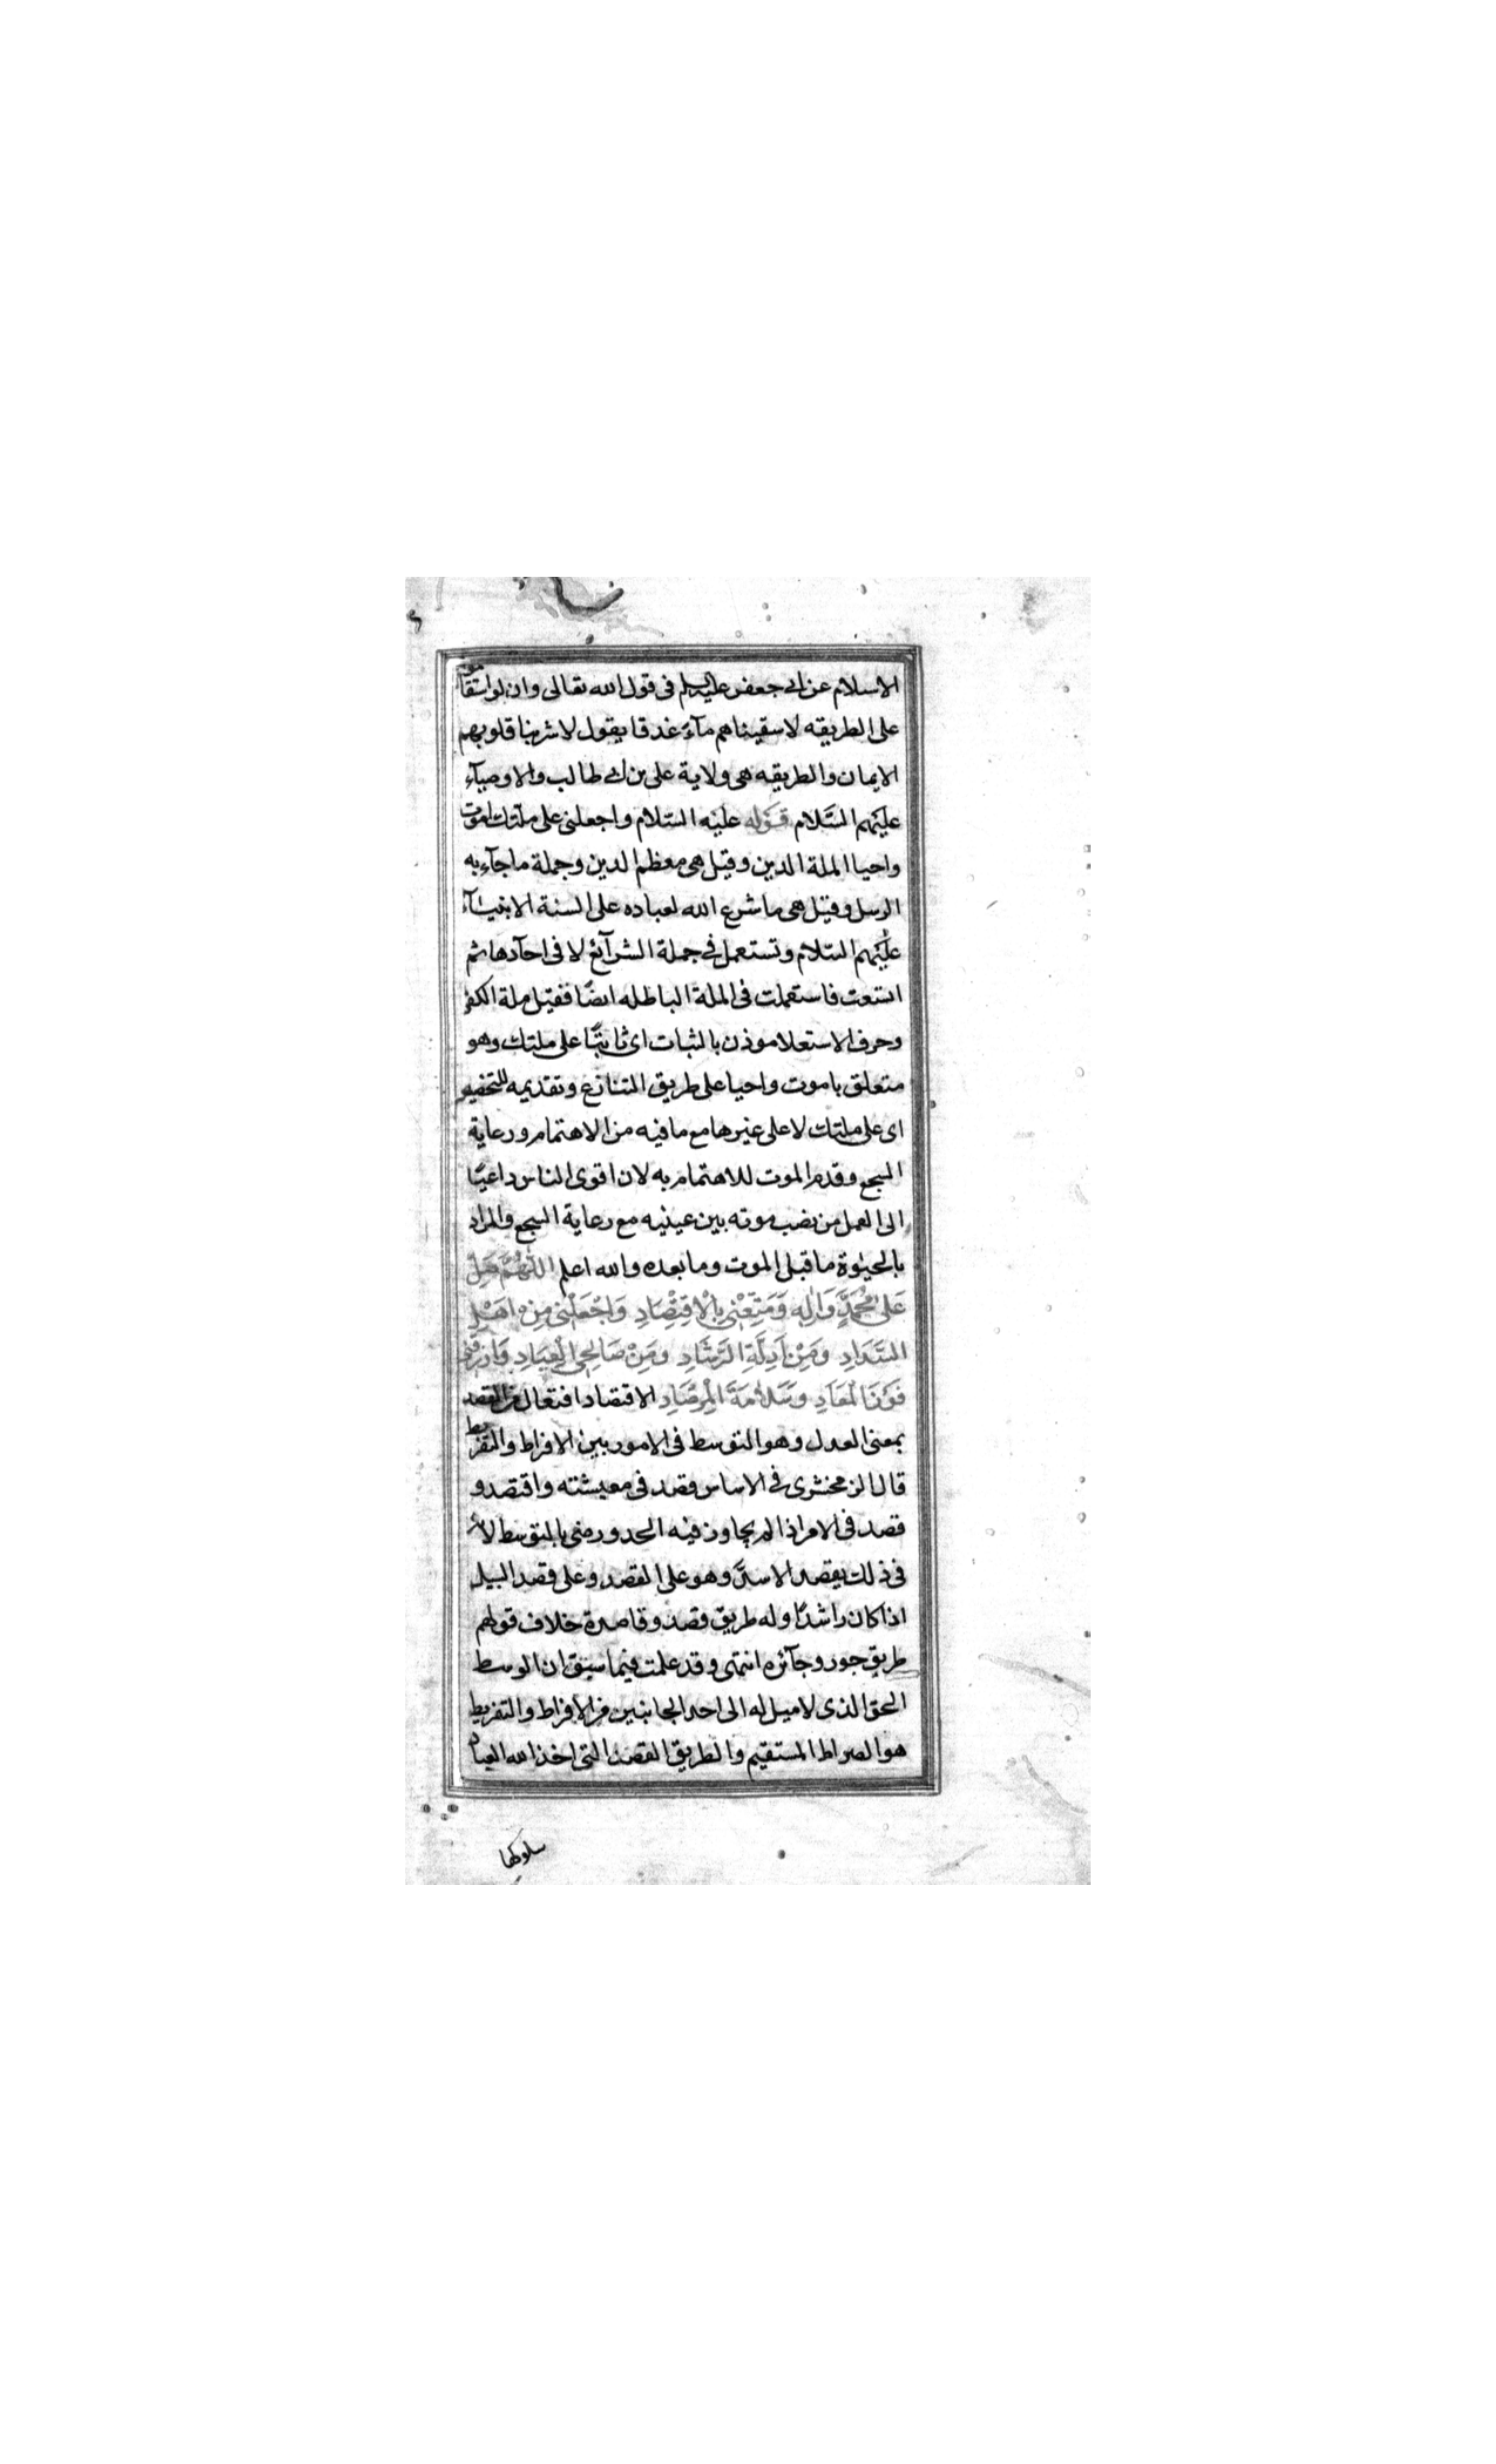 الاسلام عن ابي جعفر عليه السلم فى قول الله تعالى وان لو استقاموا
على الطريقه لاسقيناهم مآء غدقا يقول لاشربنا قلوبهم
الايمان والطريقه هى ولاية على بن ابي طالب والاوصيآء
عليهم السلام قوله عليه السلام واجعلنى على ملتك اموت
واحيا الملة الدين وقيل هى معظم الدين وجملة ماجآء به
الرسل وقيل هى ما شرع الله لعباده على السنة الانبيآء
عليهم السلام وتستعمل في جملة الشرآئع لا فى احآدها ثم
اتسعت فاستعملت فى الملة الباطله ايضًا فقيل ملة الكفر
وحرف الاستعلا موذن بالثبات اى ثابتًا على ملتك وهو
متعلق باموت واحيا على طريق التنازع وتقديمه للتخصيص
اى على ملتك لا على غيرها مع ما فيه من الاهتمام ورعاية
السجع وقدم الموت للاهتمام به لان اقوى الناس داعيًا
الى العمل من نصب موته بين عينيه مع رعاية السجع والمراد
بالحيٰوة ما قبل الموت وما بعده والله اعلم اَللّٰهُمَّ صَلِّ
عَلىٰ مُحَمَّدٍ وَاٰلِهِ وَمَتِّعْنِى بِالْاِقْتِصَادِ وَاجْعَلْنِى مِنْ اَهْلِ
السَّدَادِ وَمِنْ اَدِلَّةِ الرَّشَادِ وَمِنْ صَالِحِى الْعِبَادِ وَارْزُقْنِى
فَوْزَ الْمَعَادِ وَسَلَامَةَ الْمِرْصَادِ الاقتصاد افتعال من القصد
بمعنى العدل وهو التوسط فى الامور بين الافراط والتفريط
قال الزمخشرى في الاساس قصد فى معيشته واقتصد و
قصد فى الامر اذا لم يجاوز فيه الحد ورضى بالتوسط لانه
فى ذلك يقصد الاسدّ وهو على القصد وعلى قصد السبيل
اذا كان راشدًا وله طريق قصد وقاصدة خلاف قولهم
طريق جور وجآئرة انتهى وقد علمت فيما سبق ان الوسط
الحق الذى لا ميل له الى احد الجانبين من الافراط والتفريط
هو الصراط المستقيم والطريق القصد التى اخذ الله العباد
سلوكها